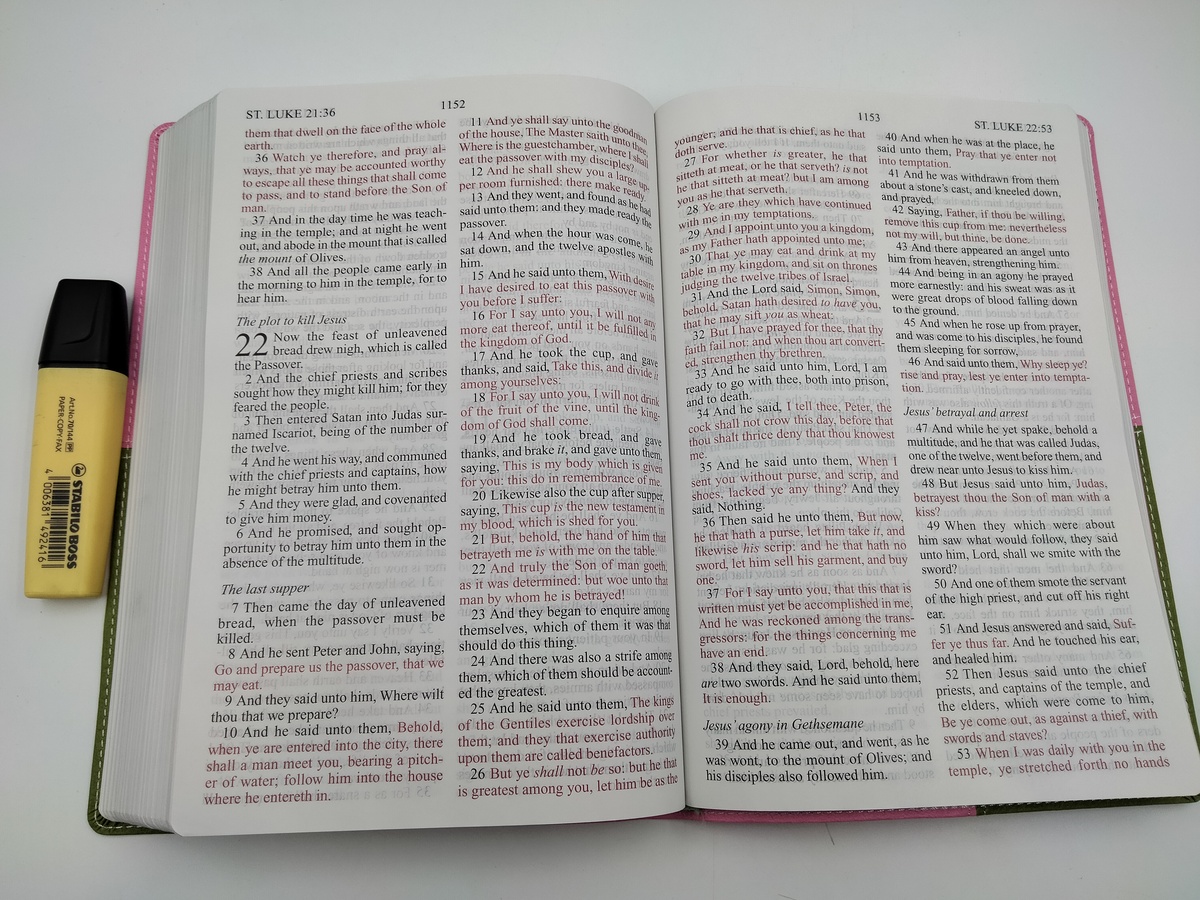 ST. LUKE 21:36
1152
them that dwell on the face of the whole
earth.
36 Watch ye therefore, and pray al-
ways, that ye may be accounted worthy
to escape all these things that shall come
to pass, and to stand before the Son of
man.
37 And in the day time he was teach-
ing in the temple; and at night he went
out, and abode in the mount that is called
the mount of Olives.
38 And all the people came early in
the morning to him in the temple, for to
hear him.
The plot to kill Jesus
22 Now the feast of unleavened
bread drew nigh, which is called
the Passover.
2 And the chief priests and scribes
sought how they might kill him; for they
feared the people.
3 Then entered Satan into Judas sur-
named Iscariot, being of the number of
the twelve.
4 And he went his way, and communed
with the chief priests and captains, how
he might betray him unto them.
5 And they were glad, and covenanted
to give him money.
6 And he promised, and sought op-
portunity to betray him unto them in the
absence of the multitude.
The last supper
7 Then came the day of unleavened
bread, when the passover must be
killed.
8 And he sent Peter and John, saying,
Go and prepare us the passover, that we
may eat.
9 And they said unto him, Where wilt
thou that we prepare?
10 And he said unto them, Behold,
when ye are entered into the city, there
shall a man meet you, bearing a pitch-
er of water; follow him into the house
where he entereth in.
11 And ye shall say unto the goodman
of the house, The Master saith unto thee,
Where is the guestchamber, where I shall
eat the passover with my disciples?
12 And he shall shew you a large up-
per room furnished: there make ready.
13 And they went, and found as he had
said unto them: and they made ready the
passover.
14 And when the hour was come, he
sat down, and the twelve apostles with
him.
15 And he said unto them, With desire
I have desired to eat this passover with
you before I suffer:
16 For I say unto you, I will not any
more eat thereof, until it be fulfilled in
the kingdom of God.
17 And he took the cup, and gave
thanks, and said, Take this, and divide it
among yourselves:
18 For I say unto you, I will not drink
of the fruit of the vine, until the king-
dom of God shall come.
19 And he took bread, and gave
thanks, and brake it, and gave unto them,
saying, This is my body which is given
for you: this do in remembrance of me.
20 Likewise also the cup after supper,
saying, This cup is the new testament in
my blood, which is shed for you.
21 But, behold, the hand of him that
betrayeth me is with me on the table.
22 And truly the Son of man goeth,
as it was determined: but woe unto that
man by whom he is betrayed!
23 And they began to enquire among
themselves, which of them it was that
should do this thing.
24 And there was also a strife among
them, which of them should be account-
ed the greatest.
25 And he said unto them, The kings
of the Gentiles exercise lordship over
them; and they that exercise authority
upon them are called benefactors.
26 But ye shall not be so: but he that
is greatest among you, let him be as the
1153
ST. LUKE 22:53
younger; and he that is chief, as he that
doth serve.
27 For whether is greater, he that
sitteth at meat, or he that serveth? is not
he that sitteth at meat? but I am among
you as he that serveth.
28 Ye are they which have continued
with me in my temptations.
29 And I appoint unto you a kingdom,
as my Father hath appointed unto me;
30 That ye may eat and drink at my
table in my kingdom, and sit on thrones
judging the twelve tribes of Israel.
31 And the Lord said, Simon, Simon,
behold, Satan hath desired to have you,
that he may sift you as wheat:
32 But I have prayed for thee, that thy
faith fail not: and when thou art convert-
ed, strengthen thy brethren.
33 And he said unto him, Lord, I am
ready to go with thee, both into prison,
and to death.
34 And he said, I tell thee, Peter, the
cock shall not crow this day, before that
thou shalt thrice deny that thou knowest
me.
35 And he said unto them, When I
sent you without purse, and scrip, and
shoes, lacked ye any thing? And they
said, Nothing.
36 Then said he unto them, But now,
he that hath a purse, let him take it, and
likewise his scrip: and he that hath no
sword, let him sell his garment, and buy
one.
37 For I say unto you, that this that is
written must yet be accomplished in me,
And he was reckoned among the trans-
gressors: for the things concerning me
have an end.
38 And they said, Lord, behold, here
are two swords. And he said unto them,
It is enough.
Jesus' agony in Gethsemane
39 And he came out, and went, as he
was wont, to the mount of Olives; and
his disciples also followed him.
40 And when he was at the place, he
said unto them, Pray that ye enter not
into temptation.
41 And he was withdrawn from them
about a stone's cast, and kneeled down,
and prayed,
42 Saying, Father, if thou be willing,
remove this cup from me: nevertheless
not my will, but thine, be done.
43 And there appeared an angel unto
him from heaven, strengthening him.
44 And being in an agony he prayed
more earnestly: and his sweat was as it
were great drops of blood falling down
to the ground.
45 And when he rose up from prayer,
and was come to his disciples, he found
them sleeping for sorrow,
46 And said unto them, Why sleep ye?
rise and pray, lest ye enter into tempta-
tion.
Jesus' betrayal and arrest
47 And while he yet spake, behold a
multitude, and he that was called Judas,
one of the twelve, went before them, and
drew near unto Jesus to kiss him.
48 But Jesus said unto him, Judas,
betrayest thou the Son of man with a
kiss?
49 When they which were about
him saw what would follow, they said
unto him, Lord, shall we smite with the
sword?
50 And one of them smote the servant
of the high priest, and cut off his right
ear.
51 And Jesus answered and said, Suf-
fer ye thus far. And he touched his ear,
and healed him.
52 Then Jesus said unto the chief
priests, and captains of the temple, and
the elders, which were come to him,
Be ye come out, as against a thief, with
swords and staves?
53 When I was daily with you in the
temple, ye stretched forth no hands
STABILO BOSS
Art.No. 70/144
PAPER·COPY·FAX
4 006381 492416